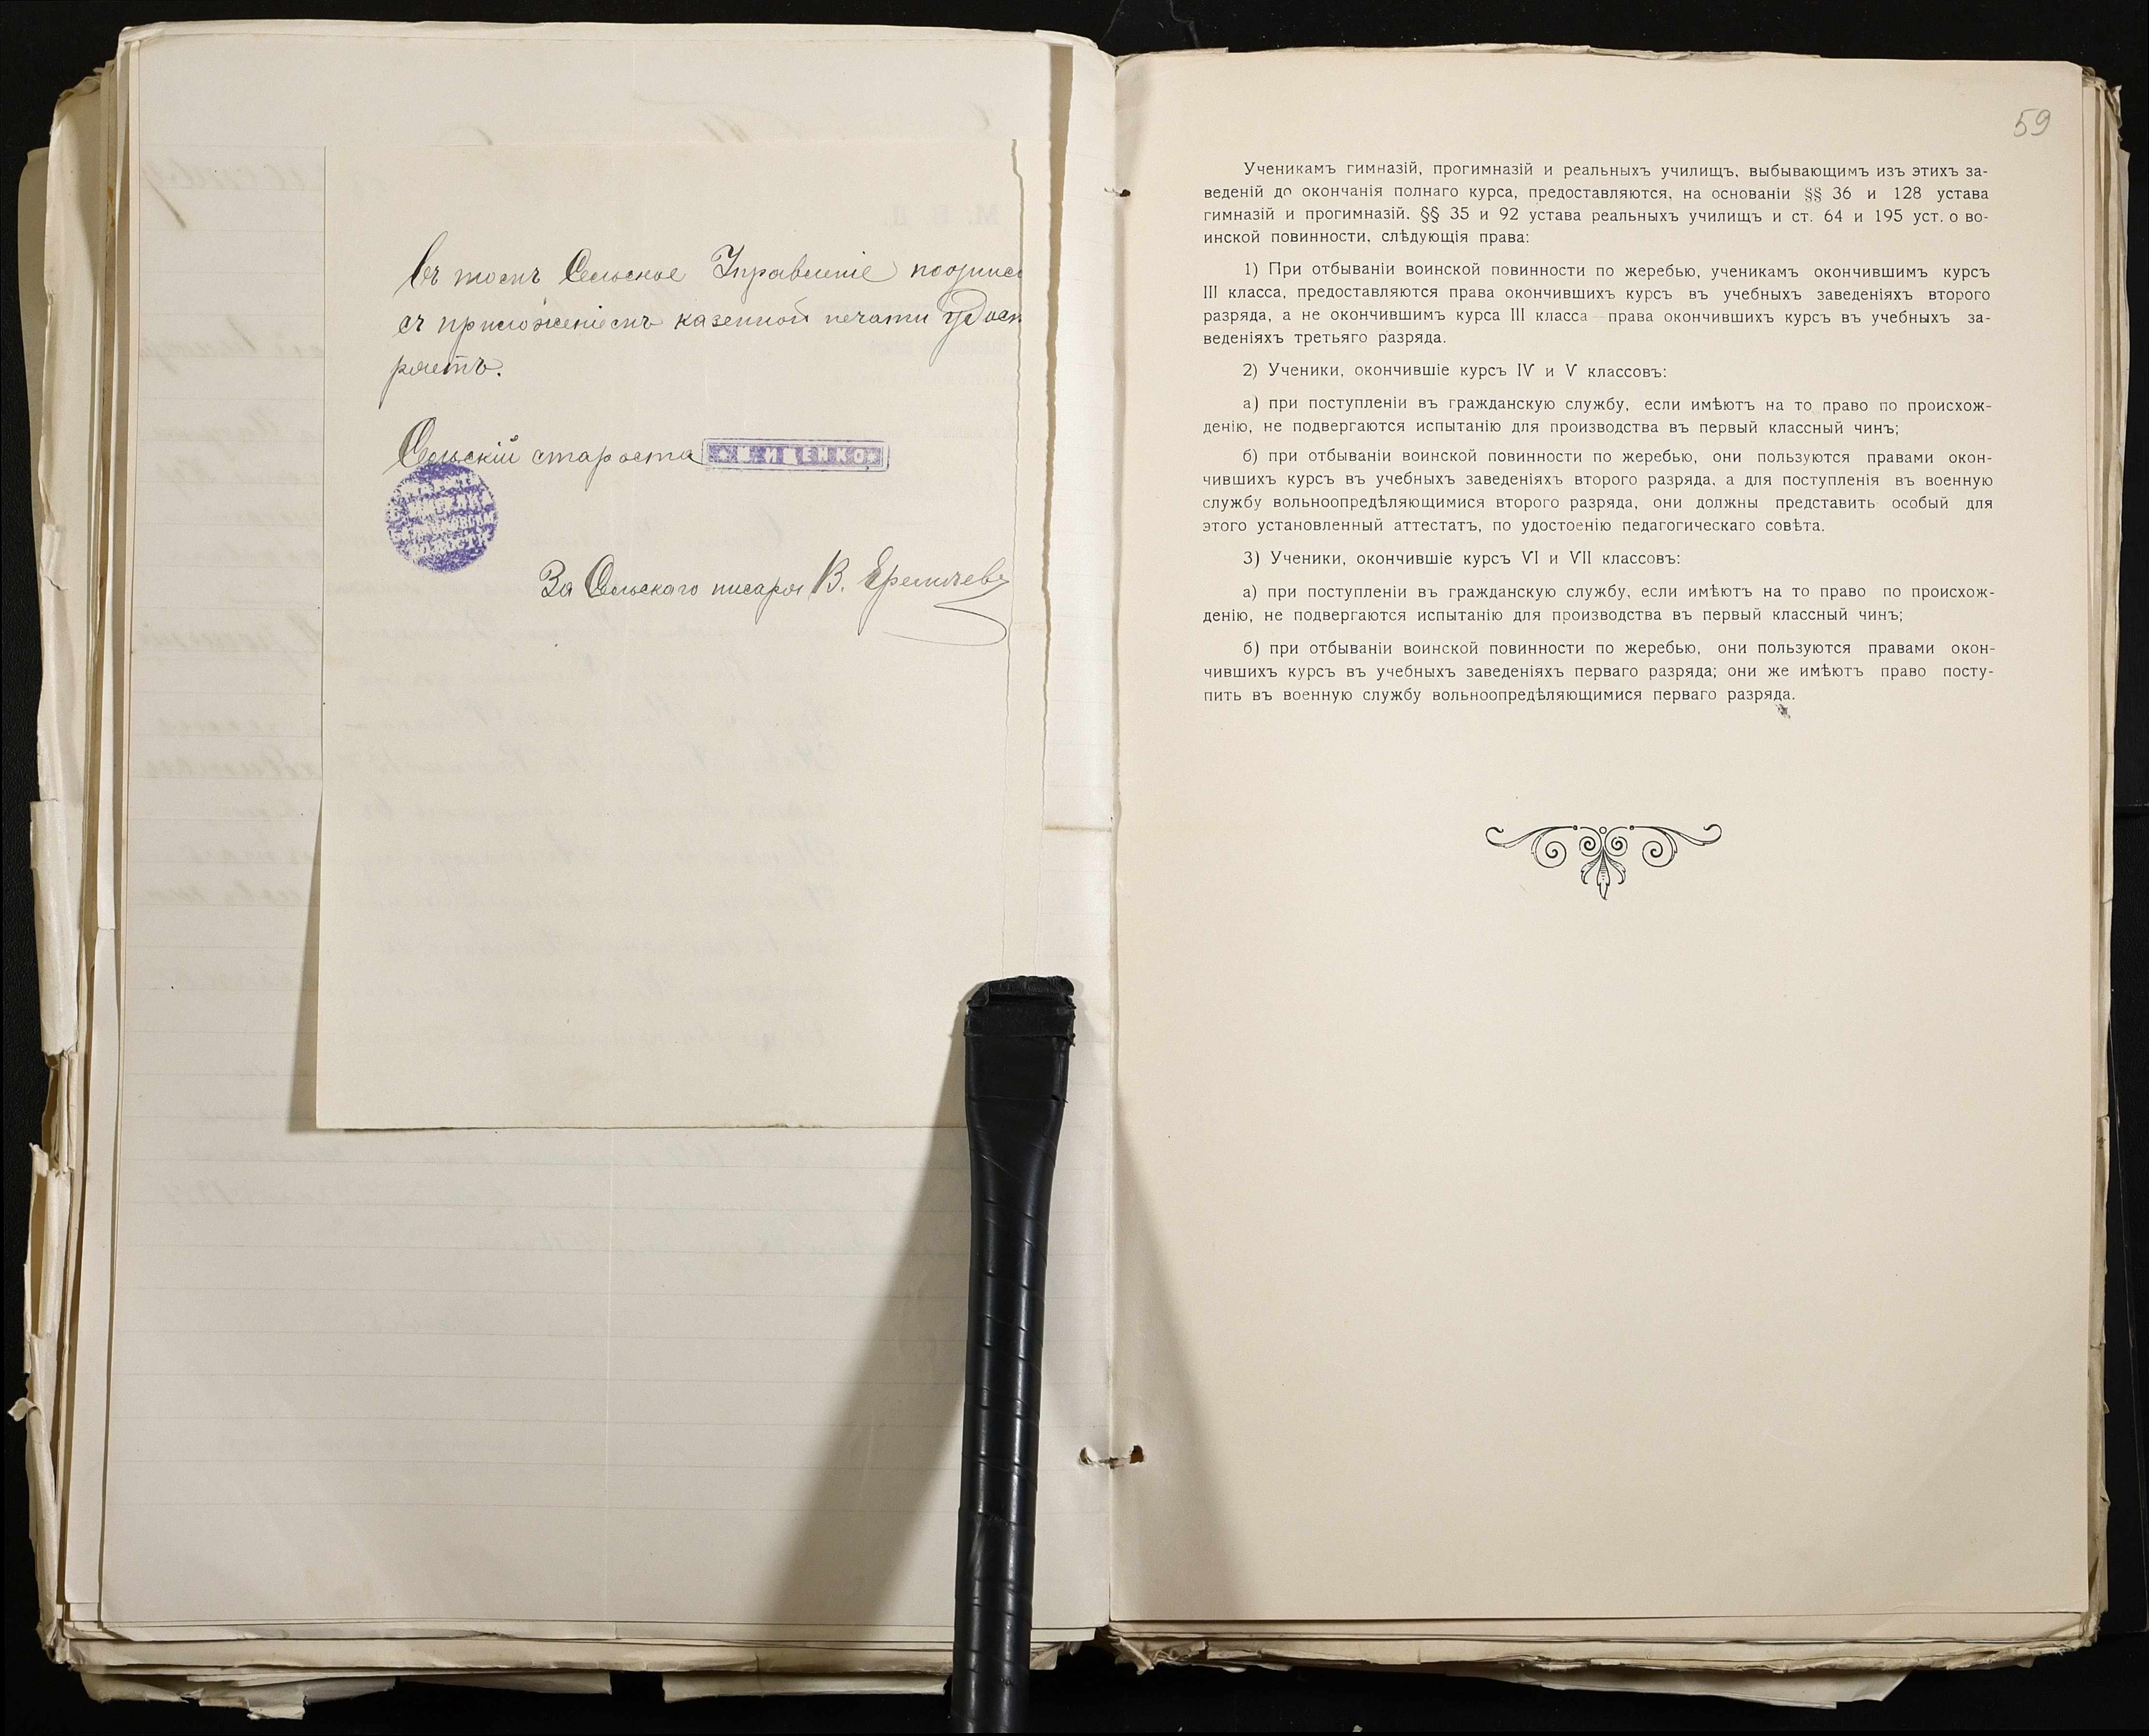 Въ томъ Сельское Управленіе подписо
съ приложеніемъ казенной печати удост
ряетъ.
Сельскій староста
ИЩЕНКО
За Сельскаго писаря В. Еремѣевъ
59
Ученикамъ гимназій, прогимназій и реальныхъ училищъ, выбывающимъ изъ этихъ за-
веденій до окончанія полнаго курса, предоставляются, на основаніи §§ 36 и 128 устава
гимназій и прогимназій. §§ 35 и 92 устава реальныхъ училищъ и ст. 64 и 195 уст. о во-
инской повинности, слѣдующія права:
1) При отбываніи воинской повинности по жеребью, ученикамъ окончившимъ курсъ
III класса, предоставляются права окончившихъ курсъ въ учебныхъ заведеніяхъ второго
разряда, а не окончившимъ курса III класса—права окончившихъ курсъ въ учебныхъ за-
веденіяхъ третьяго разряда.
2) Ученики, окончившіе курсъ IV и V классовъ:
а) при поступленіи въ гражданскую службу, если имѣютъ на то право по происхож-
денію, не подвергаются испытанію для производства въ первый классный чинъ;
б) при отбываніи воинской повинности по жеребью, они пользуются правами окон-
чившихъ курсъ въ учебныхъ заведеніяхъ второго разряда, а для поступленія въ военную
службу вольноопредѣляющимися второго разряда, они должны представить особый для
этого установленный аттестатъ, по удостоенію педагогическаго совѣта.
3) Ученики, окончившіе курсъ VI и VII классовъ:
а) при поступленіи въ гражданскую службу, если имѣютъ на то право по происхож-
денію, не подвергаются испытанію для производства въ первый классный чинъ;
б) при отбываніи воинской повинности по жеребью, они пользуются правами окон-
чившихъ курсъ въ учебныхъ заведеніяхъ перваго разряда; они же имѣютъ право посту-
пить въ военную службу вольноопредѣляющимися перваго разряда.